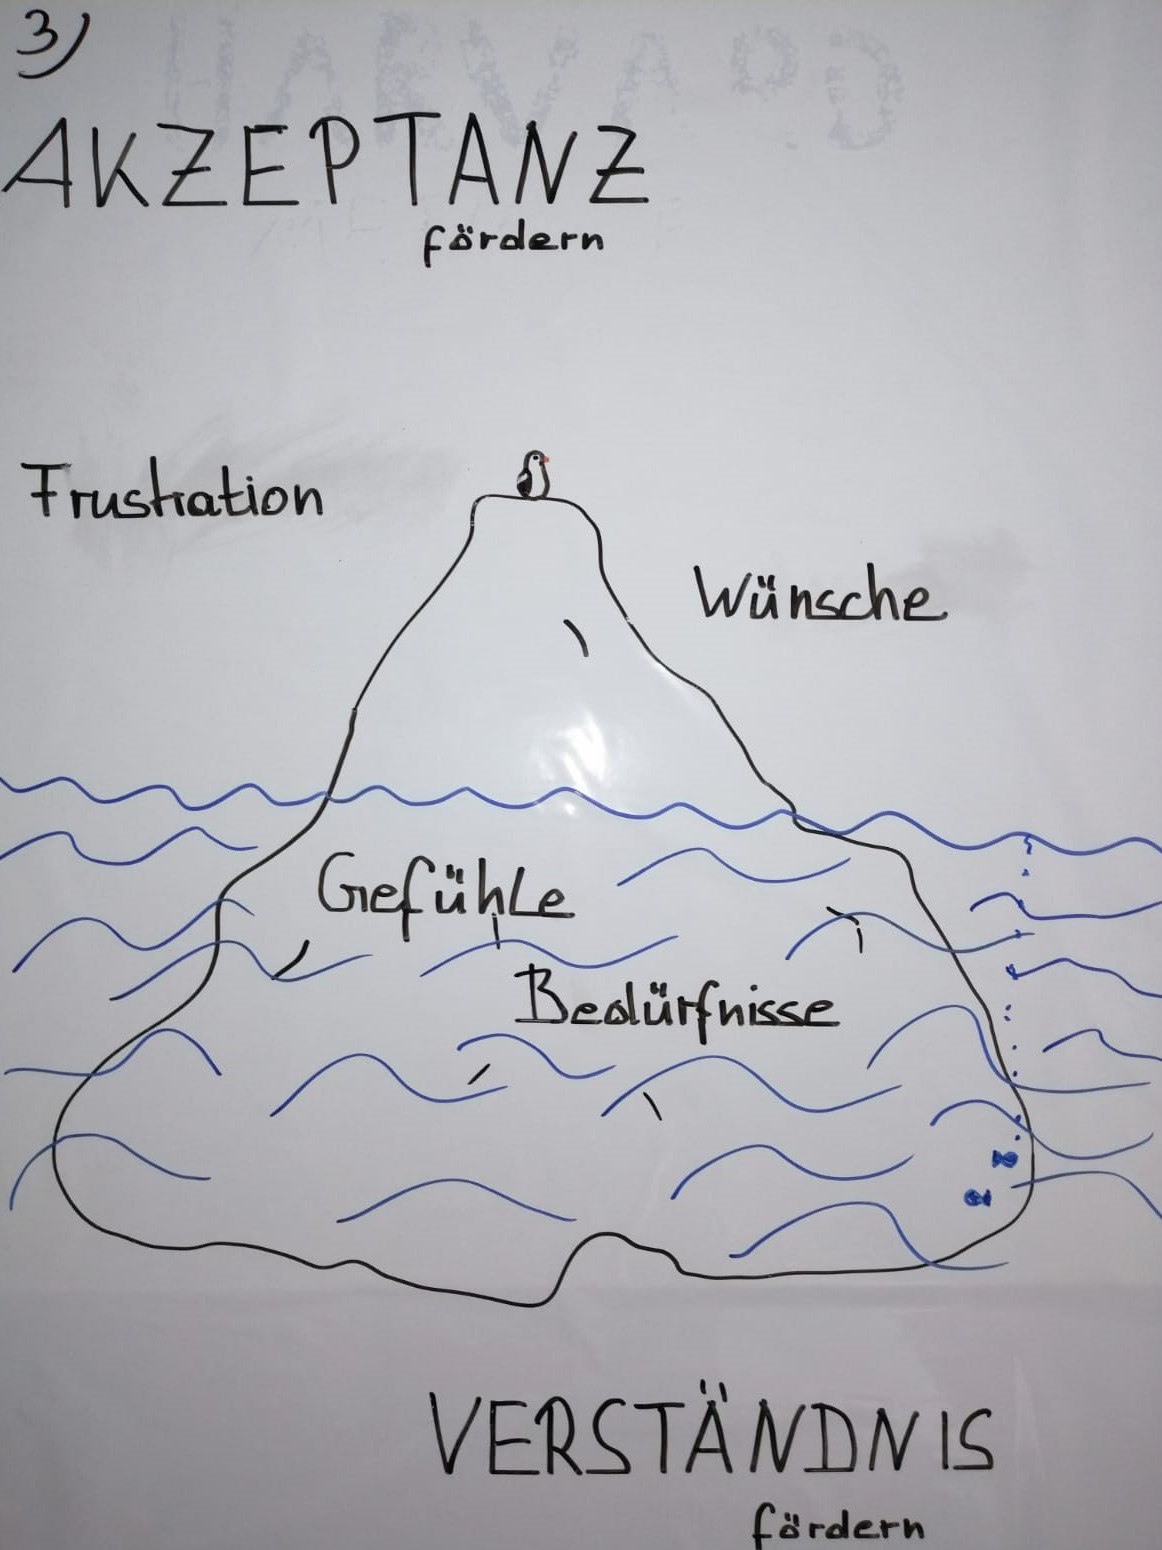 3)
AKZEPTANZ
fördern
Frustration
Wünsche
Gefühle
Bedürfnisse
VERSTÄNDNIS
fördern